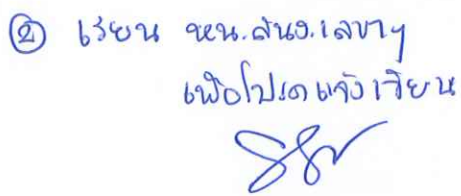 ② เรียน หน.สนง.เลขาฯ
เพื่อโปรดแจ้งเวียน